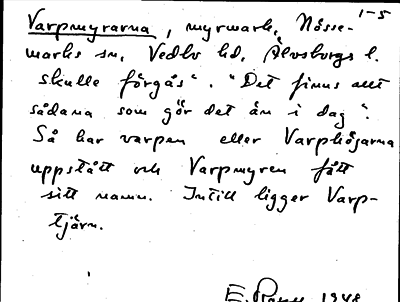 1-5
Varpmyrarna, myrmark, Nösse-
marks sn, Vedbo hd, Älvsborgs l.
skulle förgås". "Det finns allt
sådana som gör det än i dag".
Så har varpen eller Varphögarna
uppstått och Varpmyren fått
sitt namn. Intill ligger Varp-
tjärn.
E. 1948